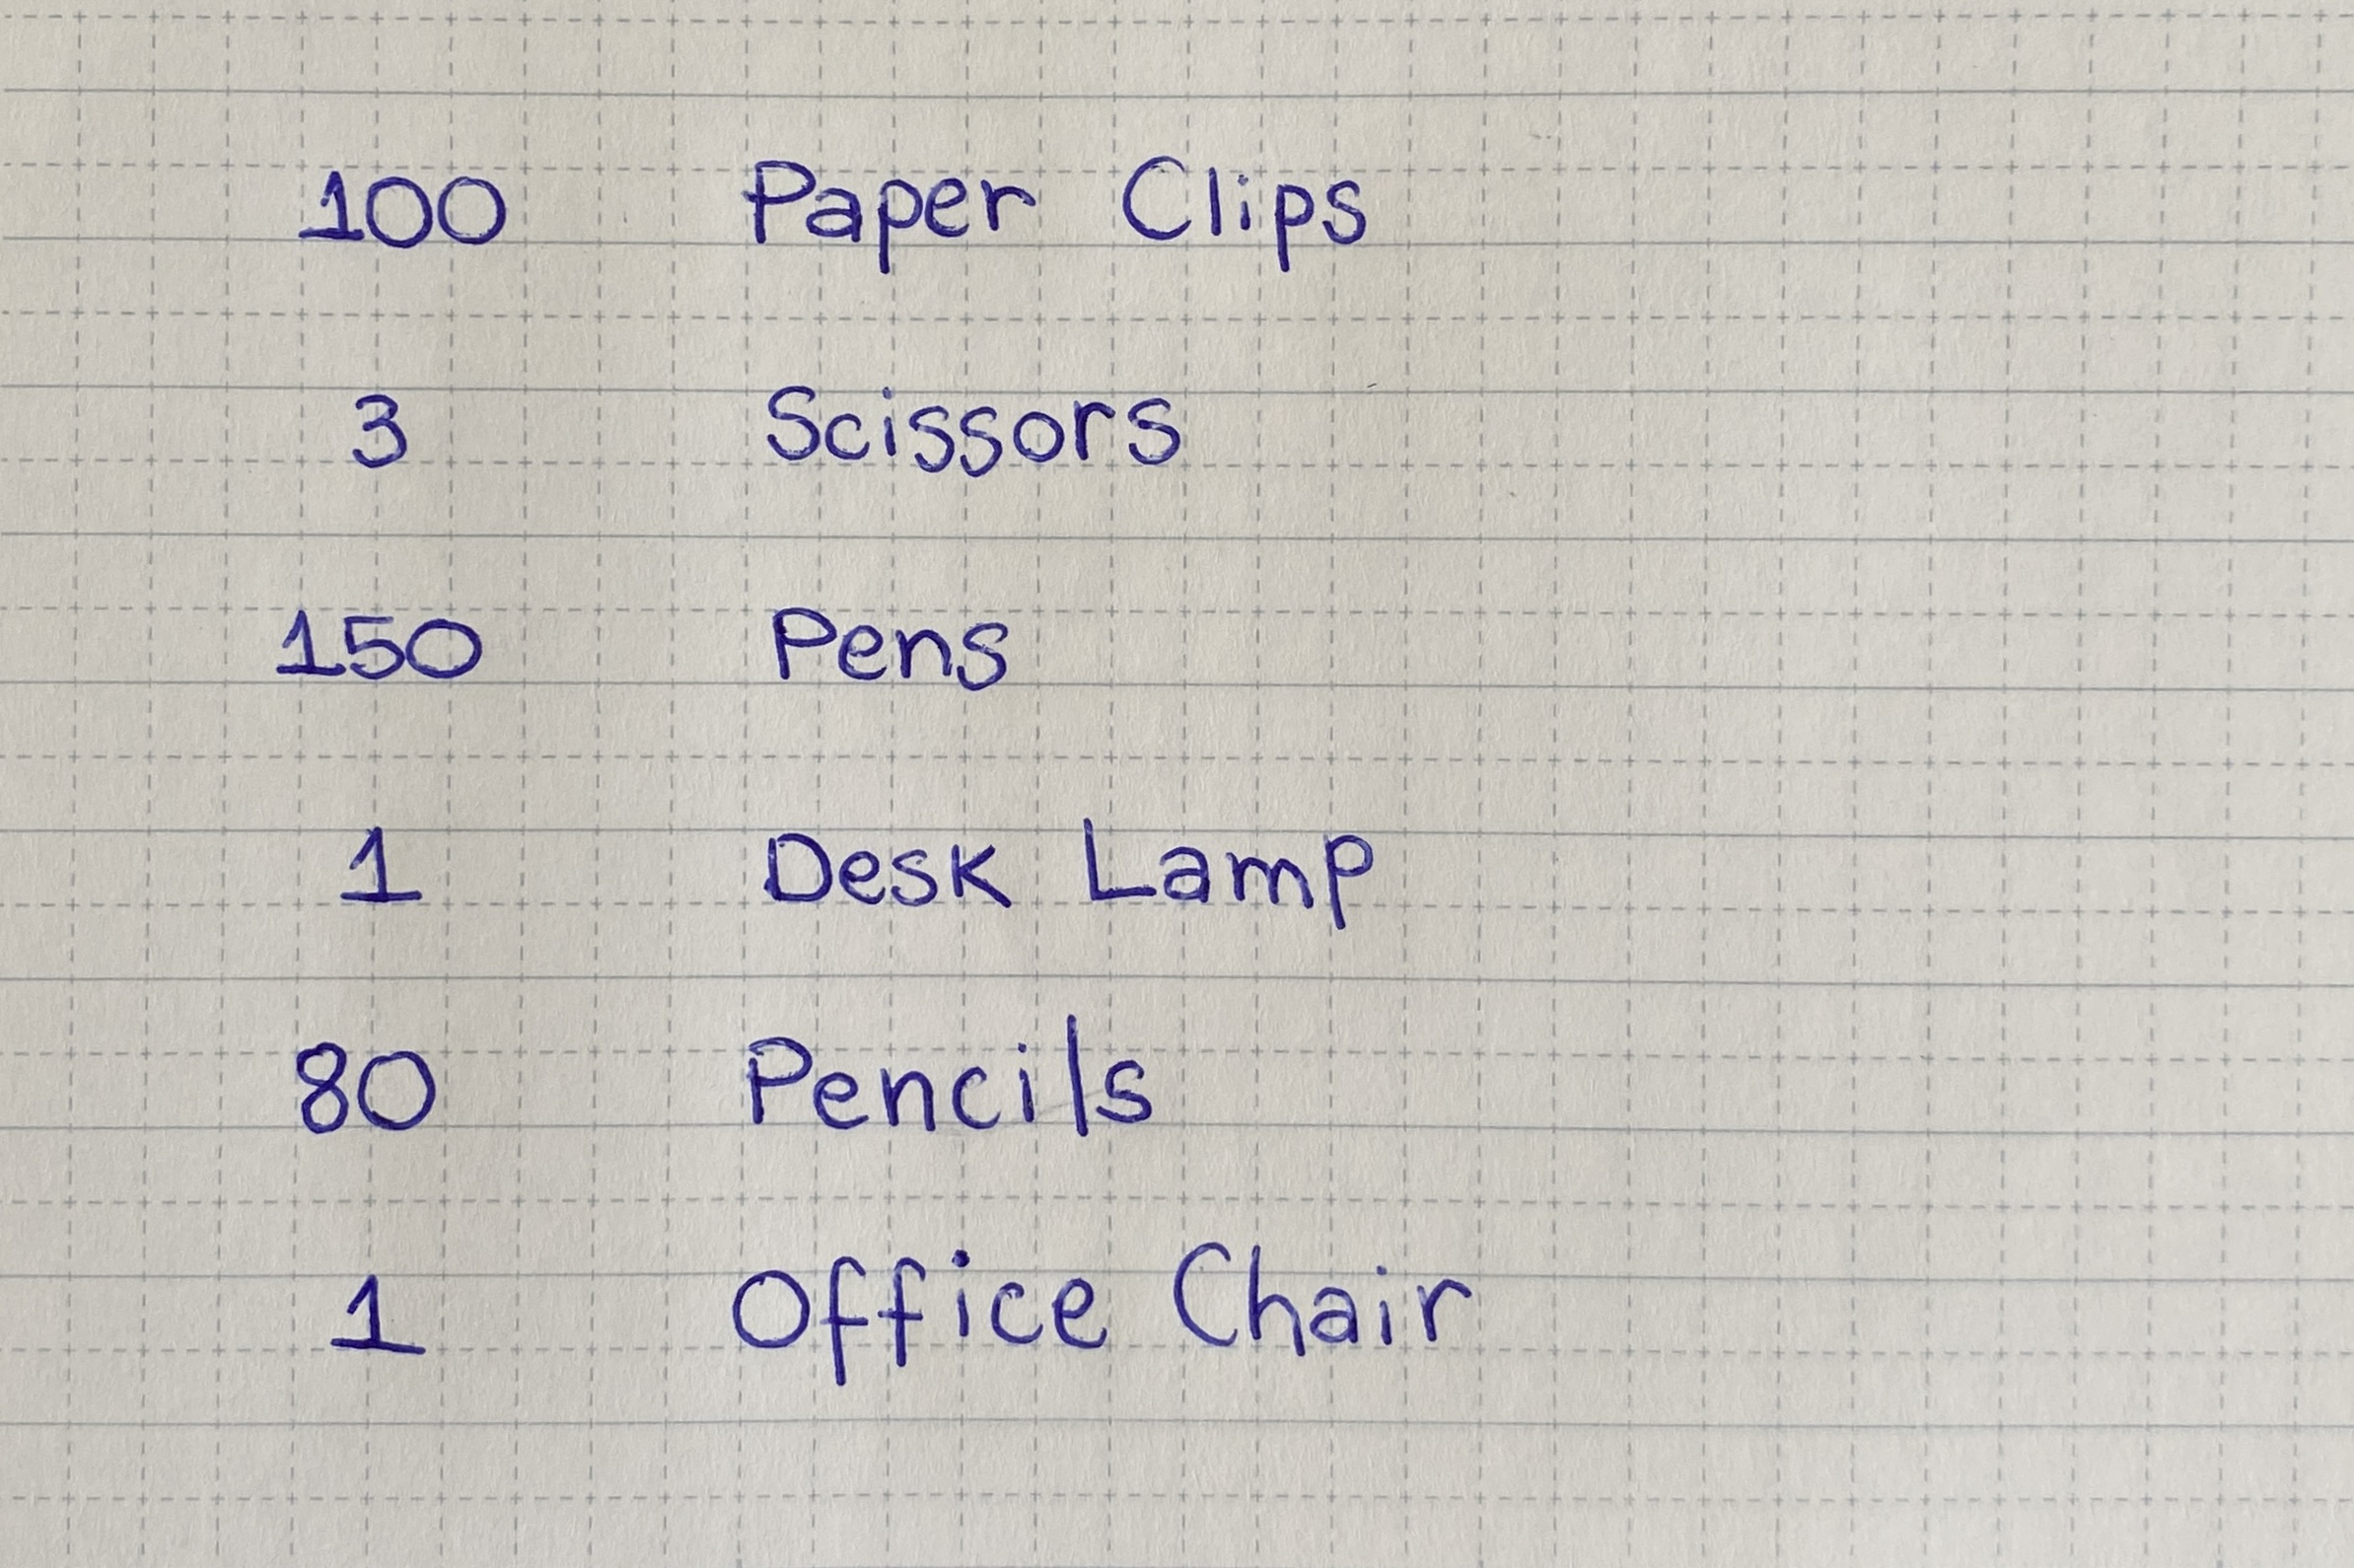 100 Paper Clips
3 Scissors
150 Pens
1 Desk Lamp
80 Pencils
1 Office Chair